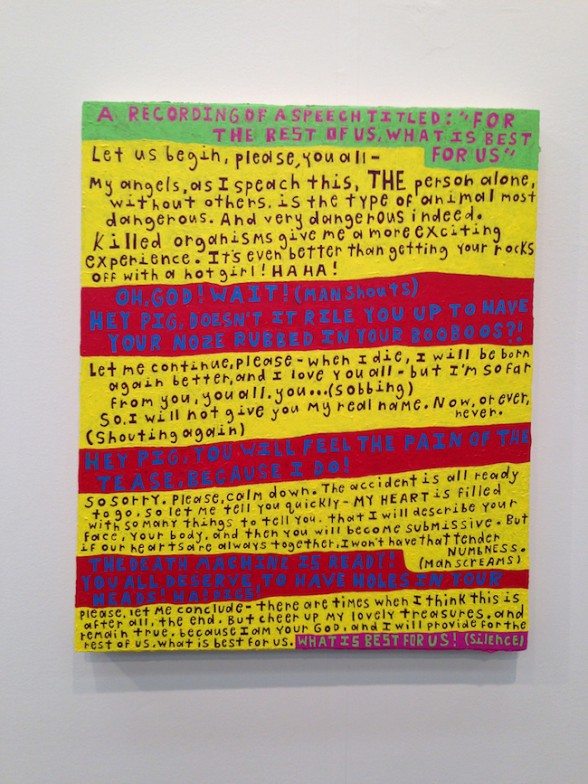 A RECORDING OF A SPEECH TITLED: "FOR
THE REST OF US, WHAT IS BEST
FOR US"
Let us begin, please, you all-
My angels, as I speach this, THE person alone,
without others. is the type of animal most
dangerous. And very dangerous indeed.
Killed organisms give me a more exciting
experience. It's even better than getting your rocks
off with a hot girl! HAHA!
OH, GOD! WAIT! (MAN Shouts)
HEY PIG, DOESN'T IT RILE YOU UP TO HAVE
YOUR NOZE RUBBED IN YOUR BOOBOOS?!
Let me continue, please - when I die, I will be born
again better, and I love you all - but I'm so far
from you, you all. you...(sobbing)
So, I will not give you my real name. Now, or ever,
never.
(Shouting again)
HEY PIG, YOU WILL FEEL THE PAIN OF THE
TEASE, BECAUSE I DO!
So sorry. Please, calm down. The accident is all ready
to go. so let me tell you quickly - MY HEART is filled
with so many things to tell you. that I will describe your
face, your body, and then you will become submissive. But
if our hearts are always together, I won't have that tender
NUMBNESS.
(Man SCREAMS)
THE DEATH MACHINE IS READY!
YOU ALL DESERVE TO HAVE HOLES IN YOUR
HEADS! HA! PIGS!
Please, let me conclude - there are times when I think this is
after all, the end. But cheer up my lovely treasures. and
remain true. because I am your God, and I will provide for the
rest of us, what is best for us. WHAT IS BEST FOR US! (Silence)